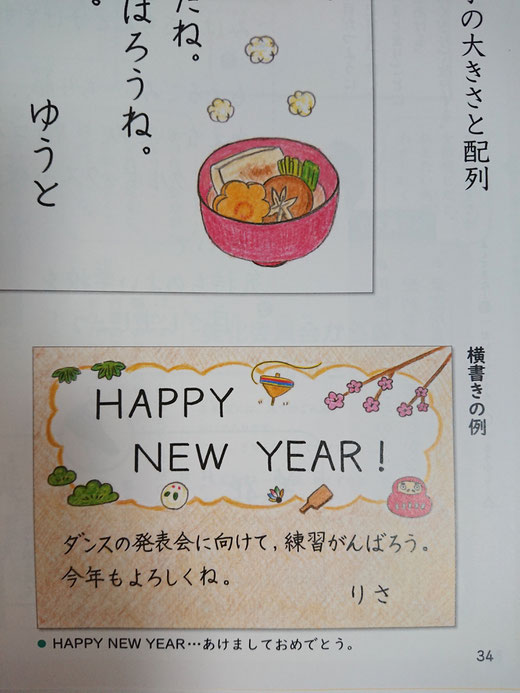 の大きさと配列
たね。
ばろうね。
ゆうと
横書きの例
HAPPY
NEW YEAR!
ダンスの発表会に向けて,練習がんばろう。
今年もよろしくね。
りさ
● HAPPY NEW YEAR…あけましておめでとう。
34